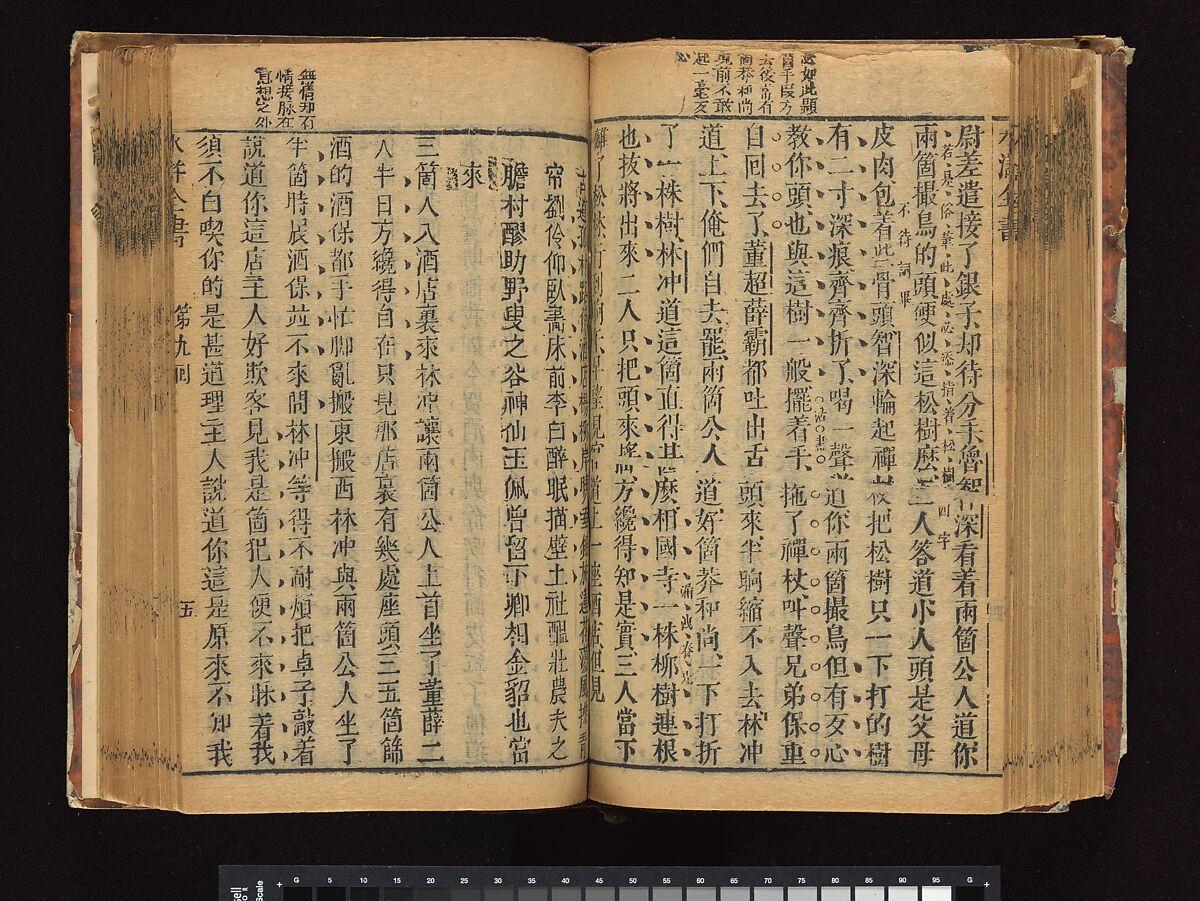 水滸全書
去後常有
尉差遣接了銀子却待分手魯智深看着兩箇公人道你
若是俗筆此處必添指着松樹四字
兩箇撮鳥的頭硬似這松樹麽二人答道小人頭是父母
不待詞畢
皮肉包着些骨頭智深輪起禪杖把松樹只一下打的樹
有二寸深痕齊齊折了喝一聲道你兩箇撮鳥但有歹心
教你頭也與這樹一般擺着手拖了禪杖叫聲兄弟保重
自回去了董超薛霸都吐出舌頭來半晌縮不入去林冲
道上下俺們自去罷兩箇公人道好箇莽和尚一下打折
了一株樹林冲道這箇直得甚麽相國寺一株柳樹連根
也拔將出來二人只把頭來搖方纔得知是實三人當下
離了松林行到晌午早望見官道上一座酒店但見
帘劉伶仰臥畵床前李白醉眠描壁上社醞壯農夫之
膽村醪助野叟之容神仙玉佩曾留下卿相金貂也當
來
三箇人入酒店裏來林冲讓兩箇公人上首坐了董薛二
人半日方纔得自在只見那店裏有幾處座頭三五箇篩
酒的酒保都手忙脚亂搬東搬西林冲與兩箇公人坐了
半箇時辰酒保並不來問林冲等得不耐煩把卓子敲着
說道你這店主人好欺客見我是箇犯人便不來睬着我
須不白喫你的是甚道理主人說道你這是原來不知我
無情却有
情接脉在
意想之外
水滸全書
第九回
五